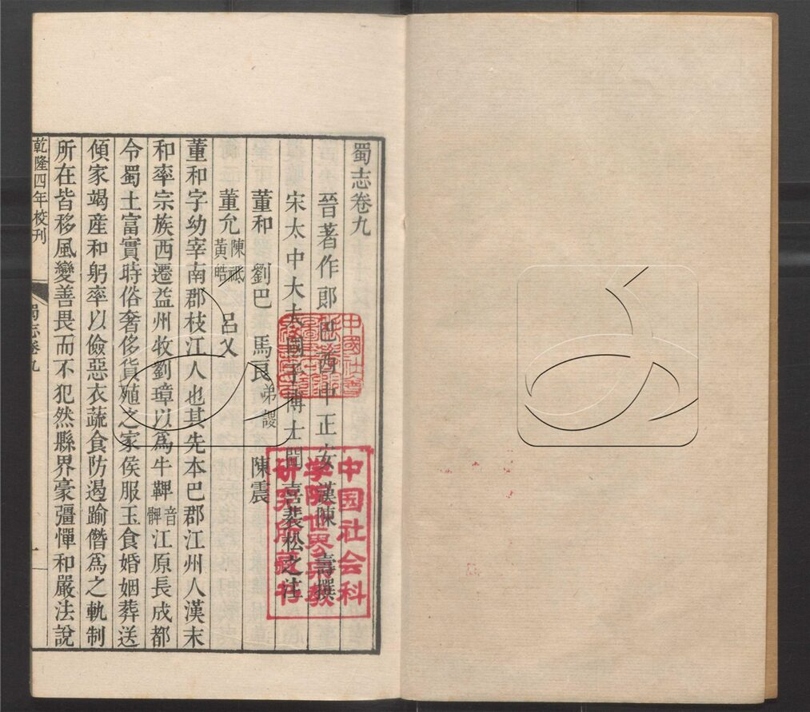 蜀志卷九
晉著作郎巴西中正安漢陳壽撰
宋太中大夫國子博士聞喜裴松之注
董和 劉巴 馬良弟謖 陳震
董允陳祗黃皓 呂乂
董和字幼宰南郡枝江人也其先本巴郡江州人漢末
和率宗族西遷益州牧劉璋以爲牛鞞音髀江原長成都
令蜀土富實時俗奢侈貨殖之家侯服玉食婚姻葬送
傾家竭産和躬率以儉惡衣蔬食防遏踰僭爲之軌制
所在皆移風變善畏而不犯然縣界豪彊憚和嚴法說
乾隆四年校刊
蜀志卷九
一
中国社会科
学院世界宗教
研究所藏书